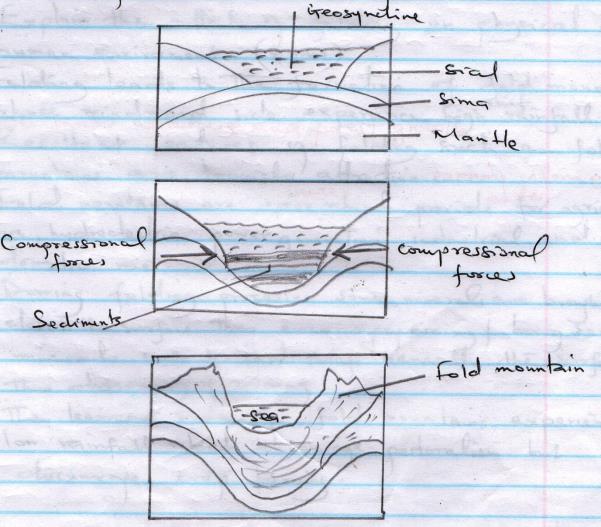 Geosyncline
Sial
Sima
Mantle
Compressional
forces
compressional
forces
Sediments
Fold mountain
Sea